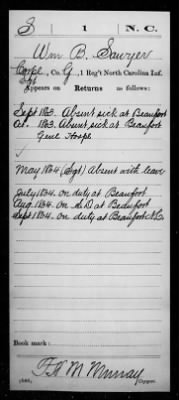 S 1 N.C.
Wm B. Sawyer
Corpl, Co. G, 1 Reg't North Carolina Inf.
Sgt
Appears on Returns as follows:
Sept 1863. Absent sick at Beaufort
1863. Absent sick at Beaufort
Genl Hospl
May 1864 (Sgt) Absent with leave
July 1864. on duty at Beaufort
Aug 1864. On S.D at Beaufort
Sept 1864. on duty at Beaufort N.C.
Book mark:
M Murray
Copyist.